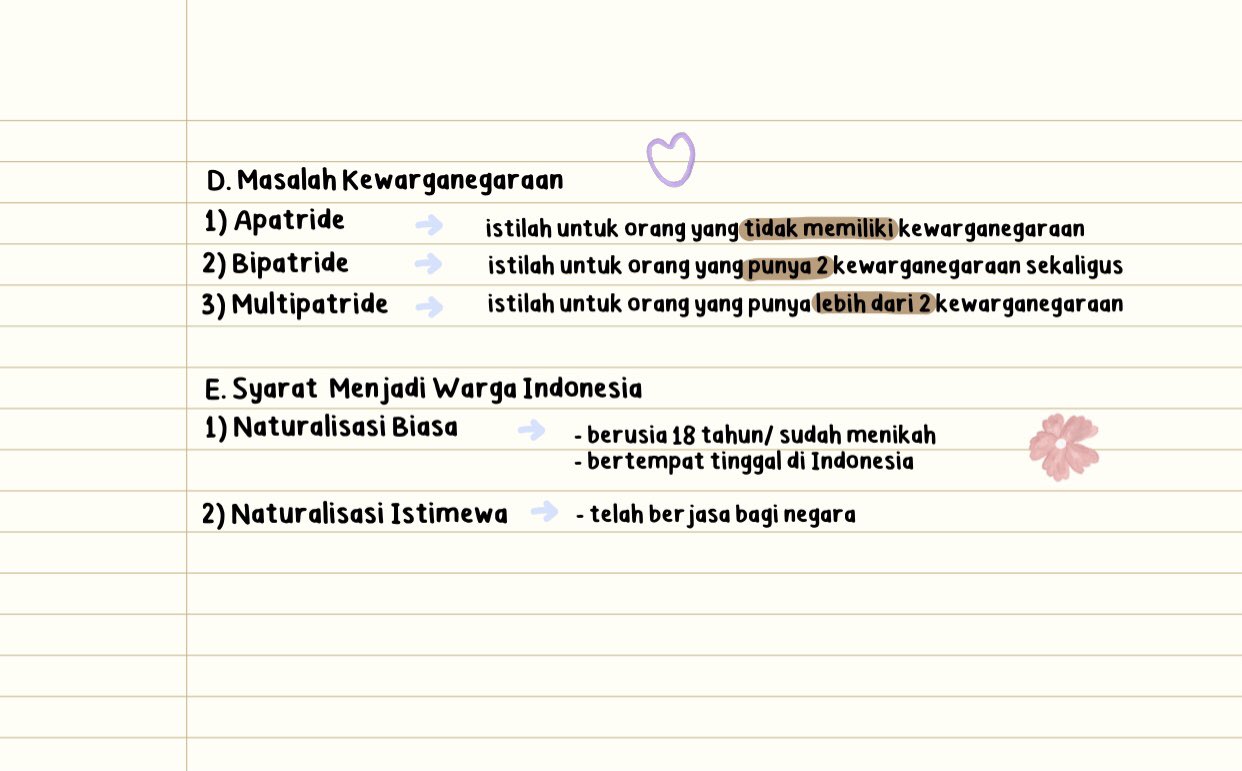 D. Masalah Kewarganegaraan
1) Apatride → istilah untuk orang yang tidak memiliki kewarganegaraan
2) Bipatride → istilah untuk orang yang punya 2 kewarganegaraan sekaligus
3) Multipatride → istilah untuk orang yang punya lebih dari 2 kewarganegaraan
E. Syarat Menjadi Warga Indonesia
1) Naturalisasi Biasa → - berusia 18 tahun/ sudah menikah
- bertempat tinggal di Indonesia
2) Naturalisasi Istimewa → - telah berjasa bagi negara